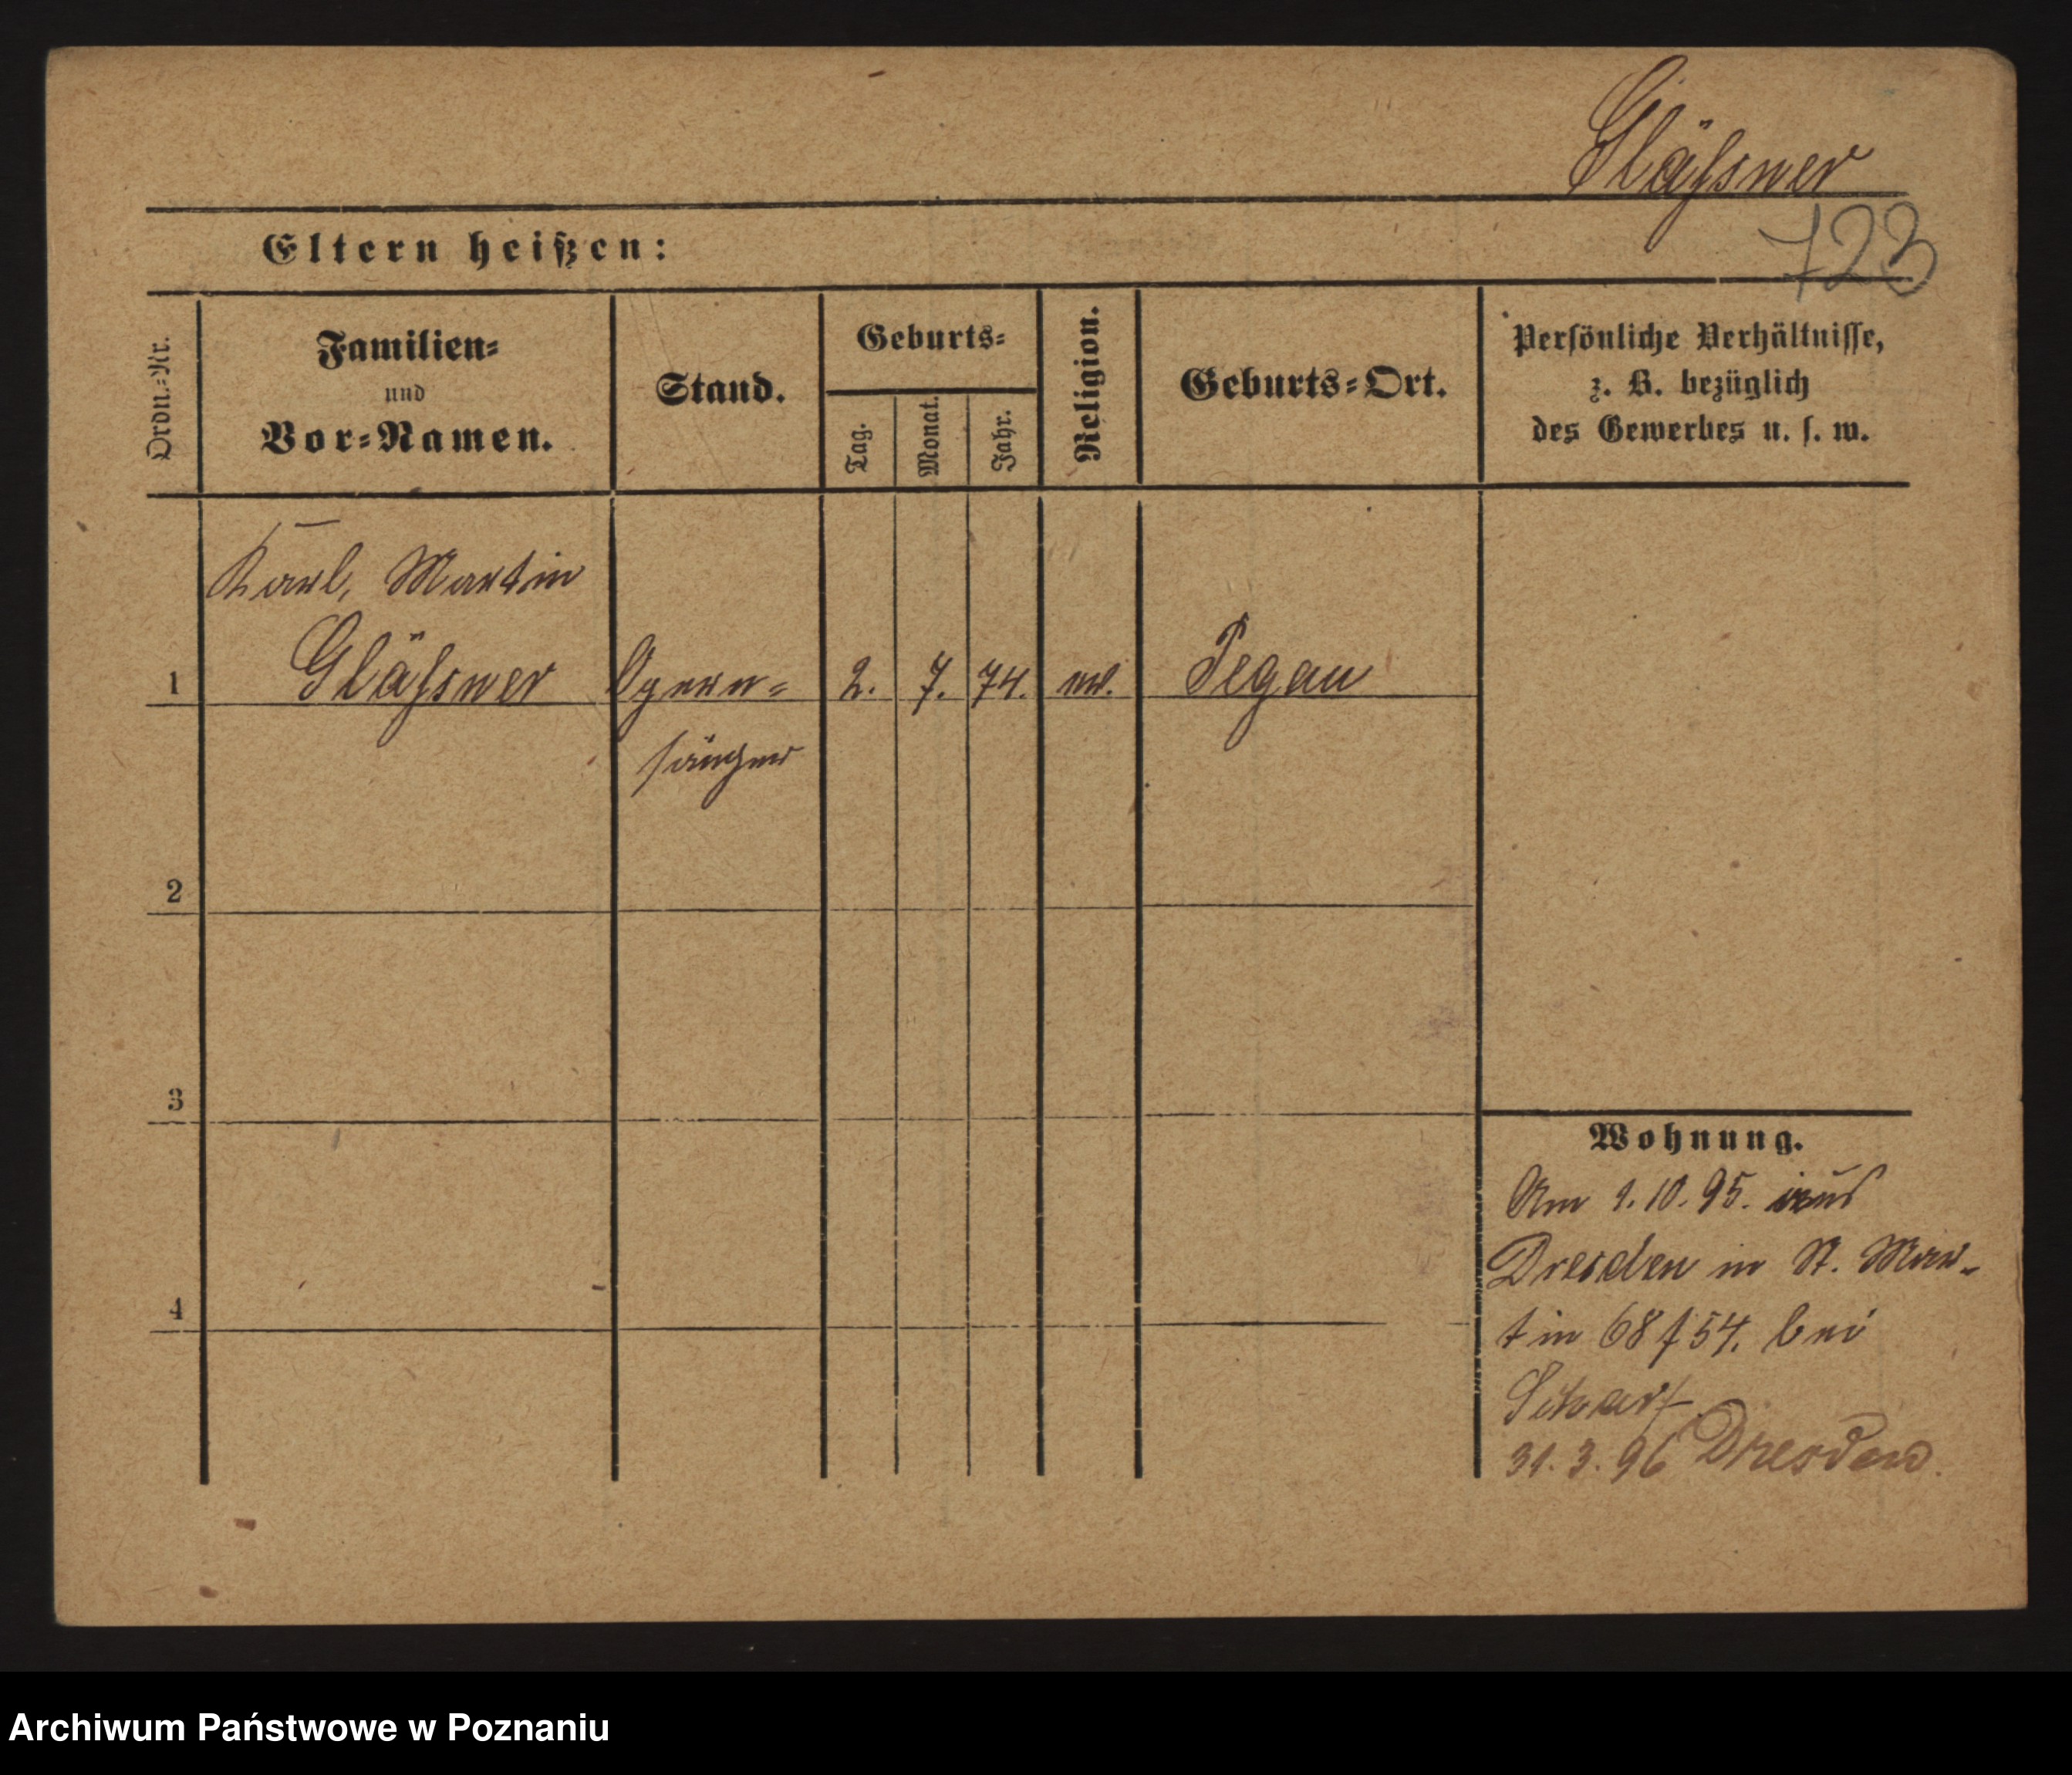 Gläßner
723
Eltern heißen:
Ordn.-Nr.
Familien-
und
Vor-Namen.
Stand.
Geburts-
Tag.
Monat.
Jahr.
Religion.
Geburts-Ort.
Persönliche Verhältnisse,
z. B. bezüglich
des Gewerbes u. s. w.
Karl, Martin
1 Gläßner Opern- 2. 7. 74. ev. Pegau
sänger
2
3
4
Wohnung.
Am 1.10.95. aus
Dresden in St. Mar-
tin 68 f 54. bei
Scharf
31.3.96 Dresden.
Archiwum Państwowe w Poznaniu